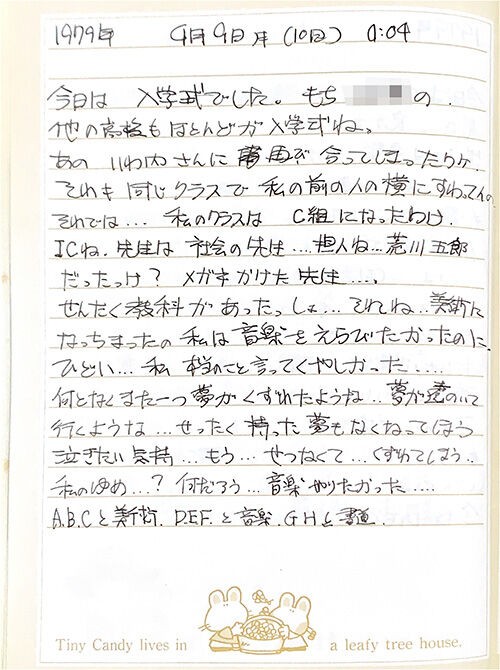 1979年 4月9日 月 (10日) 0:04
今日は 入学式でした。もち の.
他の高校もほとんどが入学式ね。
あの いわ内さんに 再び 合ってしまったらァ.
それも同じクラスで 私の前の人の横にすわってんの.
それでは... 私のクラスは C組になったわけ.
1Cね. 先生は 社会の先生....担人ね...荒川五郎
だったっけ? メガネかけた先生....
せんたく教科があったっしょ...それでね..美術に
なっちまったの 私は音楽をえらびたかったのに.
ひどい... 私 本当のこと言ってくやしかった....
何となくまた一つ夢がくずれたような..夢が遠のいて
行くような...せったく持った夢もなくなってしまう
泣きたい気持...もう...せつなくて...くずれてしまう..
私のゆめ...? 何だろう...音楽やりたかった....
A.B.Cと美術. D.E.F.と音楽. G H と書道.
Tiny Candy lives in a leafy tree house.